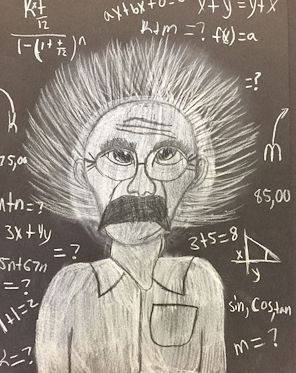 K+t
12
1-(1+t/12)^n
ax+bx+0=
x+y=y+x
K+m=?
f(x)=a
=?
k
m
75,00
n+n=?
85,00
3x+4y
=?
3+5=8
x
y
5n+67n
=?
1+1=2
sin, cos,tan
m=?
=?